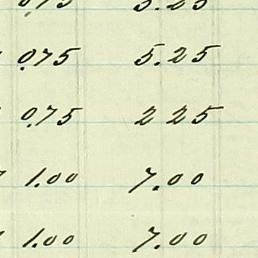 0.75 5.25
0.75 2 25
1.00 7.00
1.00 7.00